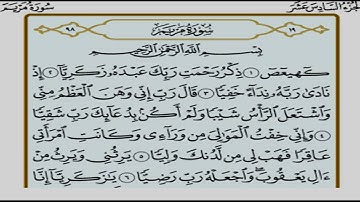 سُورَةُ مَرْيَم الجُزْءُ السَّادِسَ عَشَرَ
٩٨ سُورَةُ مَرْيَمَ ١٩
بِسْمِ اللَّهِ الرَّحْمَٰنِ الرَّحِيمِ
كٓهيعٓصٓ ١ ذِكْرُ رَحْمَتِ رَبِّكَ عَبْدَهُۥ زَكَرِيَّآ ٢ إِذْ
نَادَىٰ رَبَّهُۥ نِدَآءً خَفِيًّا ٣ قَالَ رَبِّ إِنِّي وَهَنَ ٱلْعَظْمُ مِنِّي
وَٱشْتَعَلَ ٱلرَّأْسُ شَيْبًا وَلَمْ أَكُنۢ بِدُعَآئِكَ رَبِّ شَقِيًّا
٤ وَإِنِّي خِفْتُ ٱلْمَوَٰلِيَ مِن وَرَآءِي وَكَانَتِ ٱمْرَأَتِي
عَاقِرًا فَهَبْ لِي مِن لَّدُنكَ وَلِيًّا ٥ يَرِثُنِي وَيَرِثُ مِنْ
ءَالِ يَعْقُوبَ ۖ وَٱجْعَلْهُ رَبِّ رَضِيًّا ٦ يَٰزَكَرِيَّآ إِنَّا